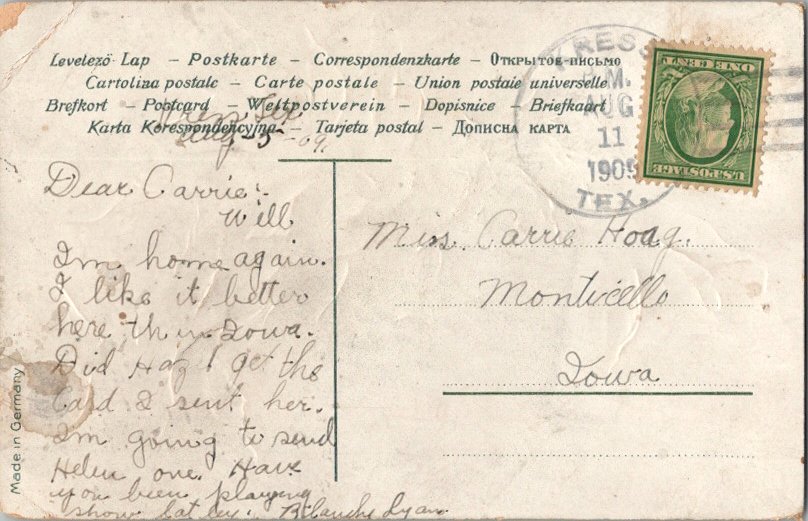 Levelező Lap – Postkarte – Correspondenzkarte – Открытое письмо
Cartolina postale – Carte postale – Union postale universelle
Brefkort – Postcard – Weltpostverein – Dopisnice – Briefkaart
Karta Korespondencyjna – Tarjeta postal – Дописна карта
Kress Tex
Aug-5-09.
KRESS
P.M.
AUG
11
1909
TEX.
ONE CENT
U.S. POSTAGE
Dear Carrie:
Well
I'm home again.
I like it better
here than Iowa.
Did get the
Card I sent her.
I'm going to send
Helen one. Have
you been playing
show lately. Blanche Lyan
Miss. Carrie Hoag.
Monticello
Iowa
Made in Germany